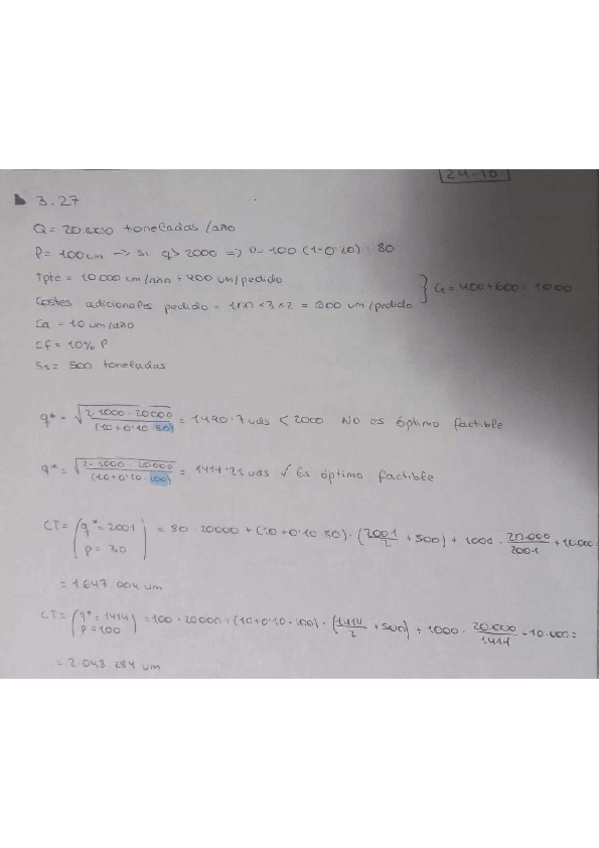 24-10
3.27
Q = 20000 toneladas/año
P = 100um -> si q > 2000 => P = 100 (1-0'20) = 80
Tpte = 10000 um/año + 400 um/pedido
Costes adicionales pedido = 100 × 3 × 2 = 600 um/pedido } = 400 + 600 = 1000
Ca = 10 um/año
Cf = 10% P
Ss = 500 toneladas
q* = √(2·1000·20000 / (10+0'10·80)) = 1490'7 uds < 2000 No es óptimo factible
q* = √(2·1000·20000 / (10+0'10·100)) = 1414'21 uds ✓ Es óptimo factible
CT = (q* = 2001 P = 80) = 80·20000 + (10+0'10·80)·(2001/2 + 500) + 1000·20.000/2001 + 10.000
= 1.647.004 um
CT = (q* = 1414 P = 100) = 100·20000 + (10+0'10·100)·(1414/2 + 500) + 1000·20.000/1414 + 10.000 =
= 2.048.284 um